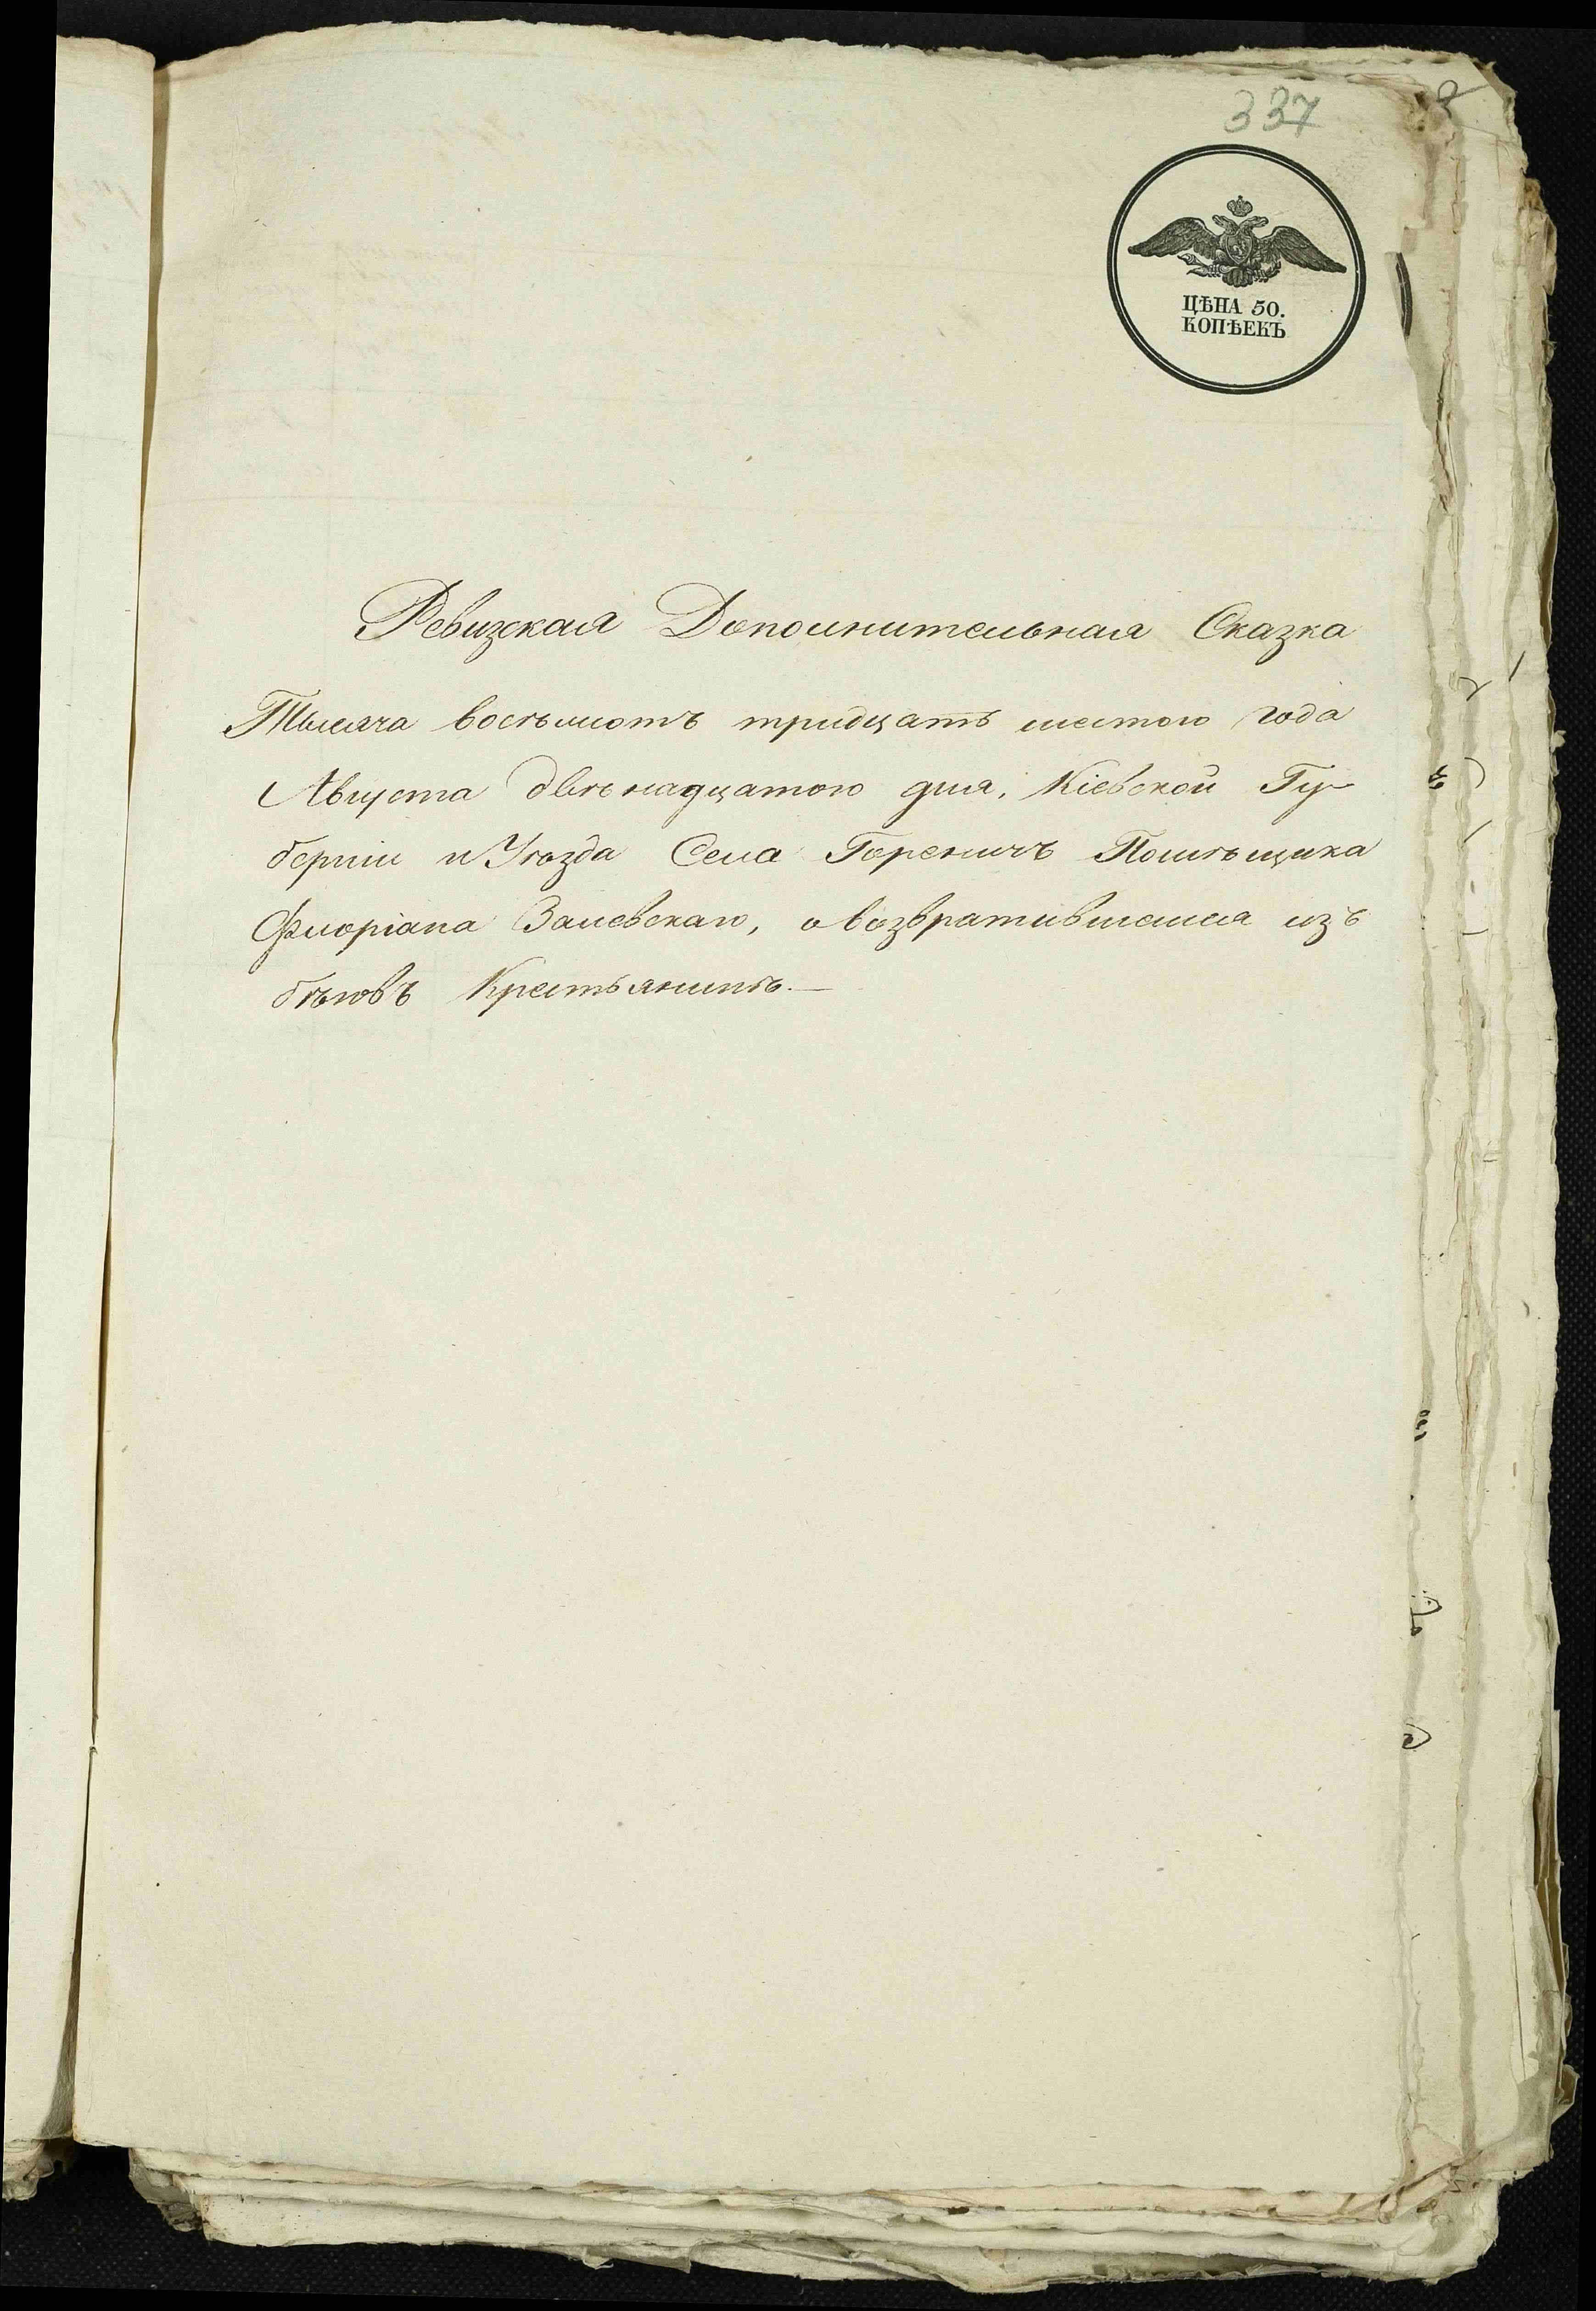 337
ЦѢНА 50.
КОПѢЕКЪ
Ревизская Дополнительная Сказка
Тысяча восѣмсотъ тридцать шестого года
Августа двѣнадцатого дня, Кіевской Гу-
берніи и Уѣзда Села Горѣничъ Помѣщика
Флоріана Залевскаго, о возвратившемся изъ
бѣговъ Крестьянинѣ.—